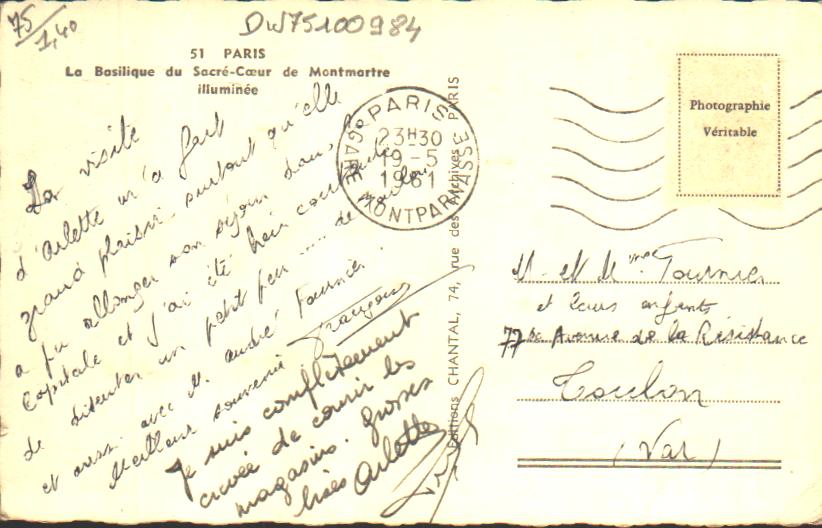 75
1,40
DW75100984
51 PARIS
La Basilique du Sacré-Cœur de Montmartre
illuminée
La visite
d'Arlette m'a fait
grand plaisir surtout qu'elle
a pu allonger son séjour dans la
Capitale et j'ai été bien contente
de discuter un petit peu ..... de Toulon
et aussi avec M. André Fournier.
Meilleur souvenir
Françoise
Je suis complètement
crevée de courir les
magasins. Grosses
bises Arlette
PARIS
GARE MONTPARNASSE
23H30
19-5
1961
Editions CHANTAL, 74, rue des Archives PARIS
Photographie
Véritable
M. et Mme Fournier
et leurs enfants
77 bis Avenue de la Résistance
Toulon
(Var)